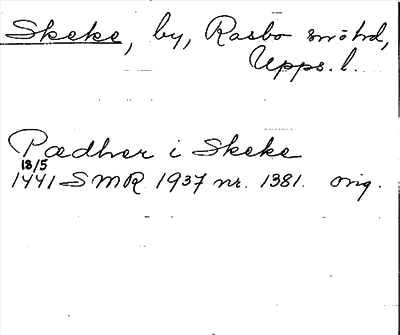 Skeke, by, Rasbo snöhd,
Upps. l.
Pædher i Skeke
18/5
1441 SMR 1937 nr. 1381. orig.